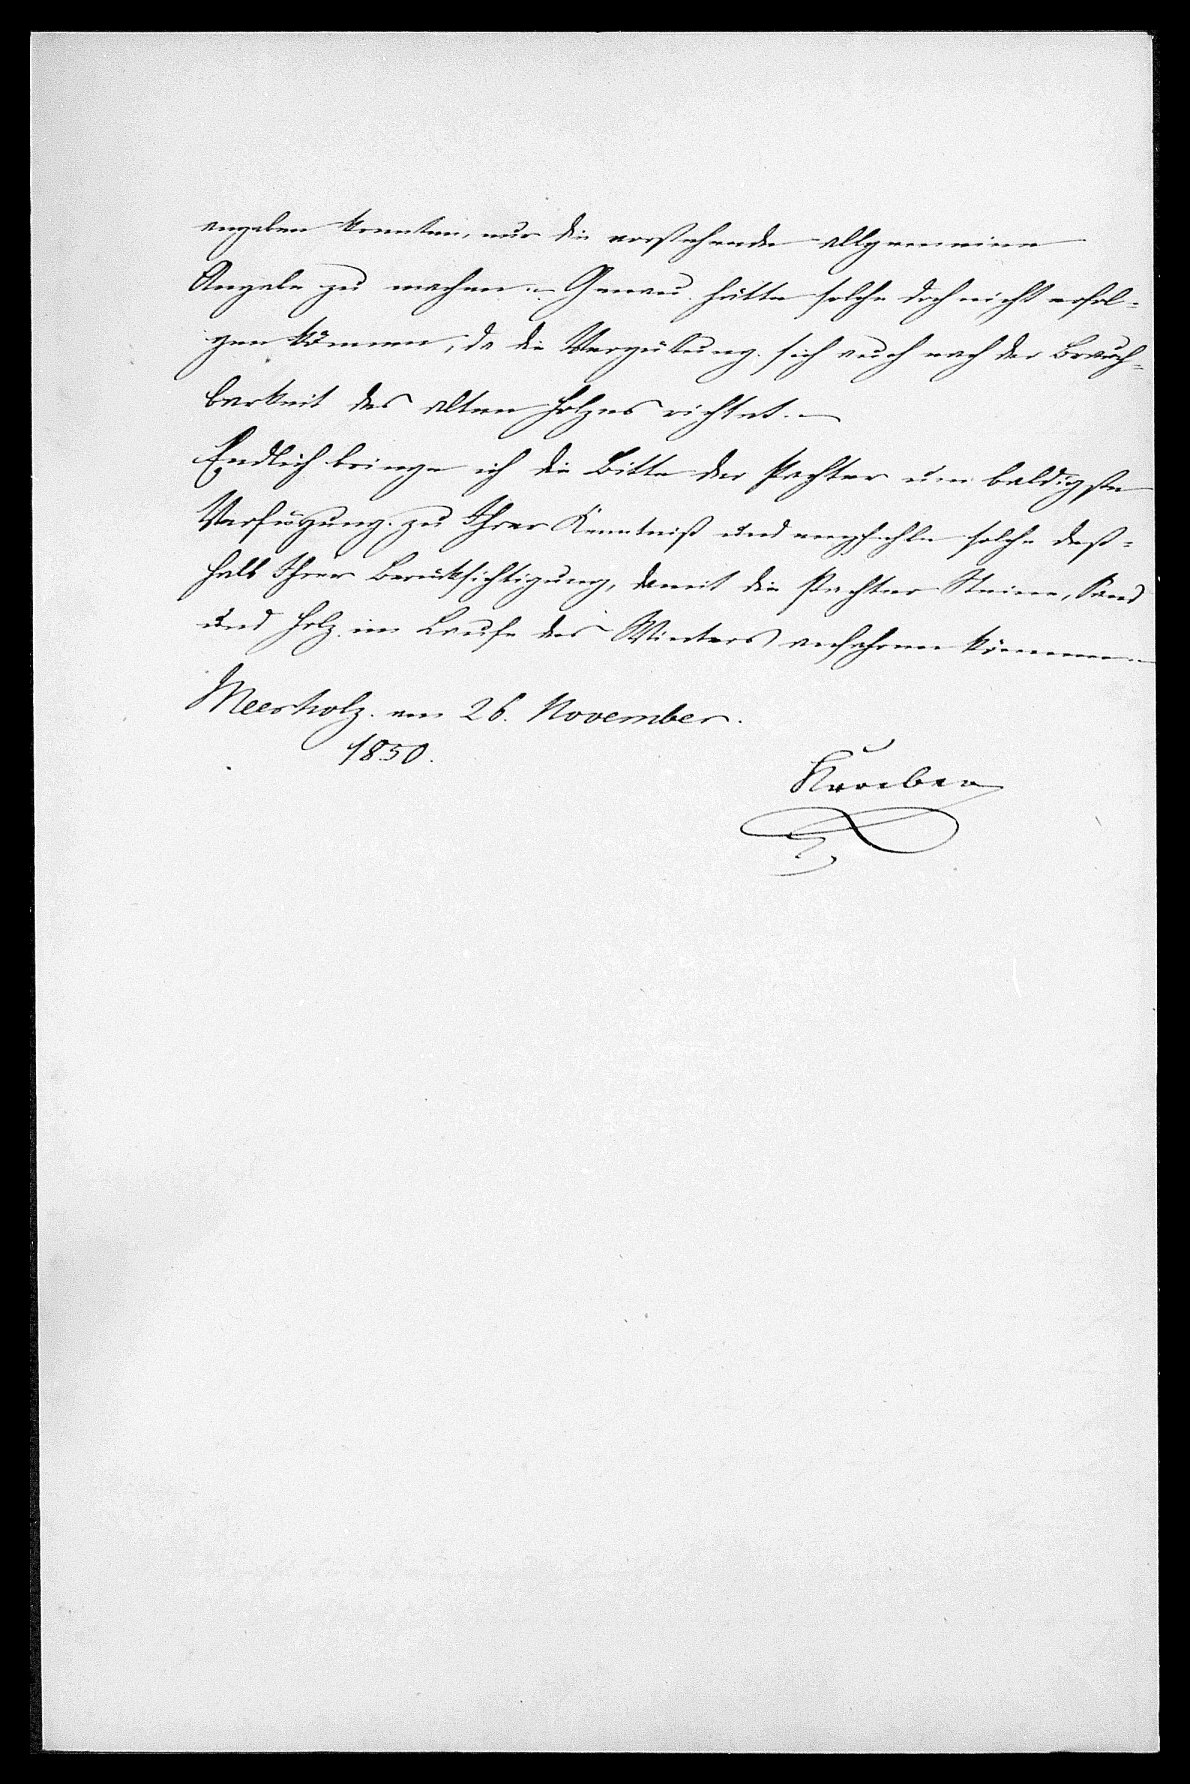 angeben konnten, nur die vorstehende allgemeine
Angabe zu machen.– Genau hätte solche doch nicht erfol=
gen können, da die Vergütung sich auch nach der Brauch=
barkeit des alten Holzes richtet.–
Endlich bringe ich die Bitte der Pachter um baldigste
Verfügung zu Ihrer Kenntniß und empfehle solche deß=
halb Ihrer Berücksichtigung, damit die Pachter Steine, Sand
und Holz im Laufe des Winters anfahren können.–
Meerholz. am 26. November.
1850.
Kroeber